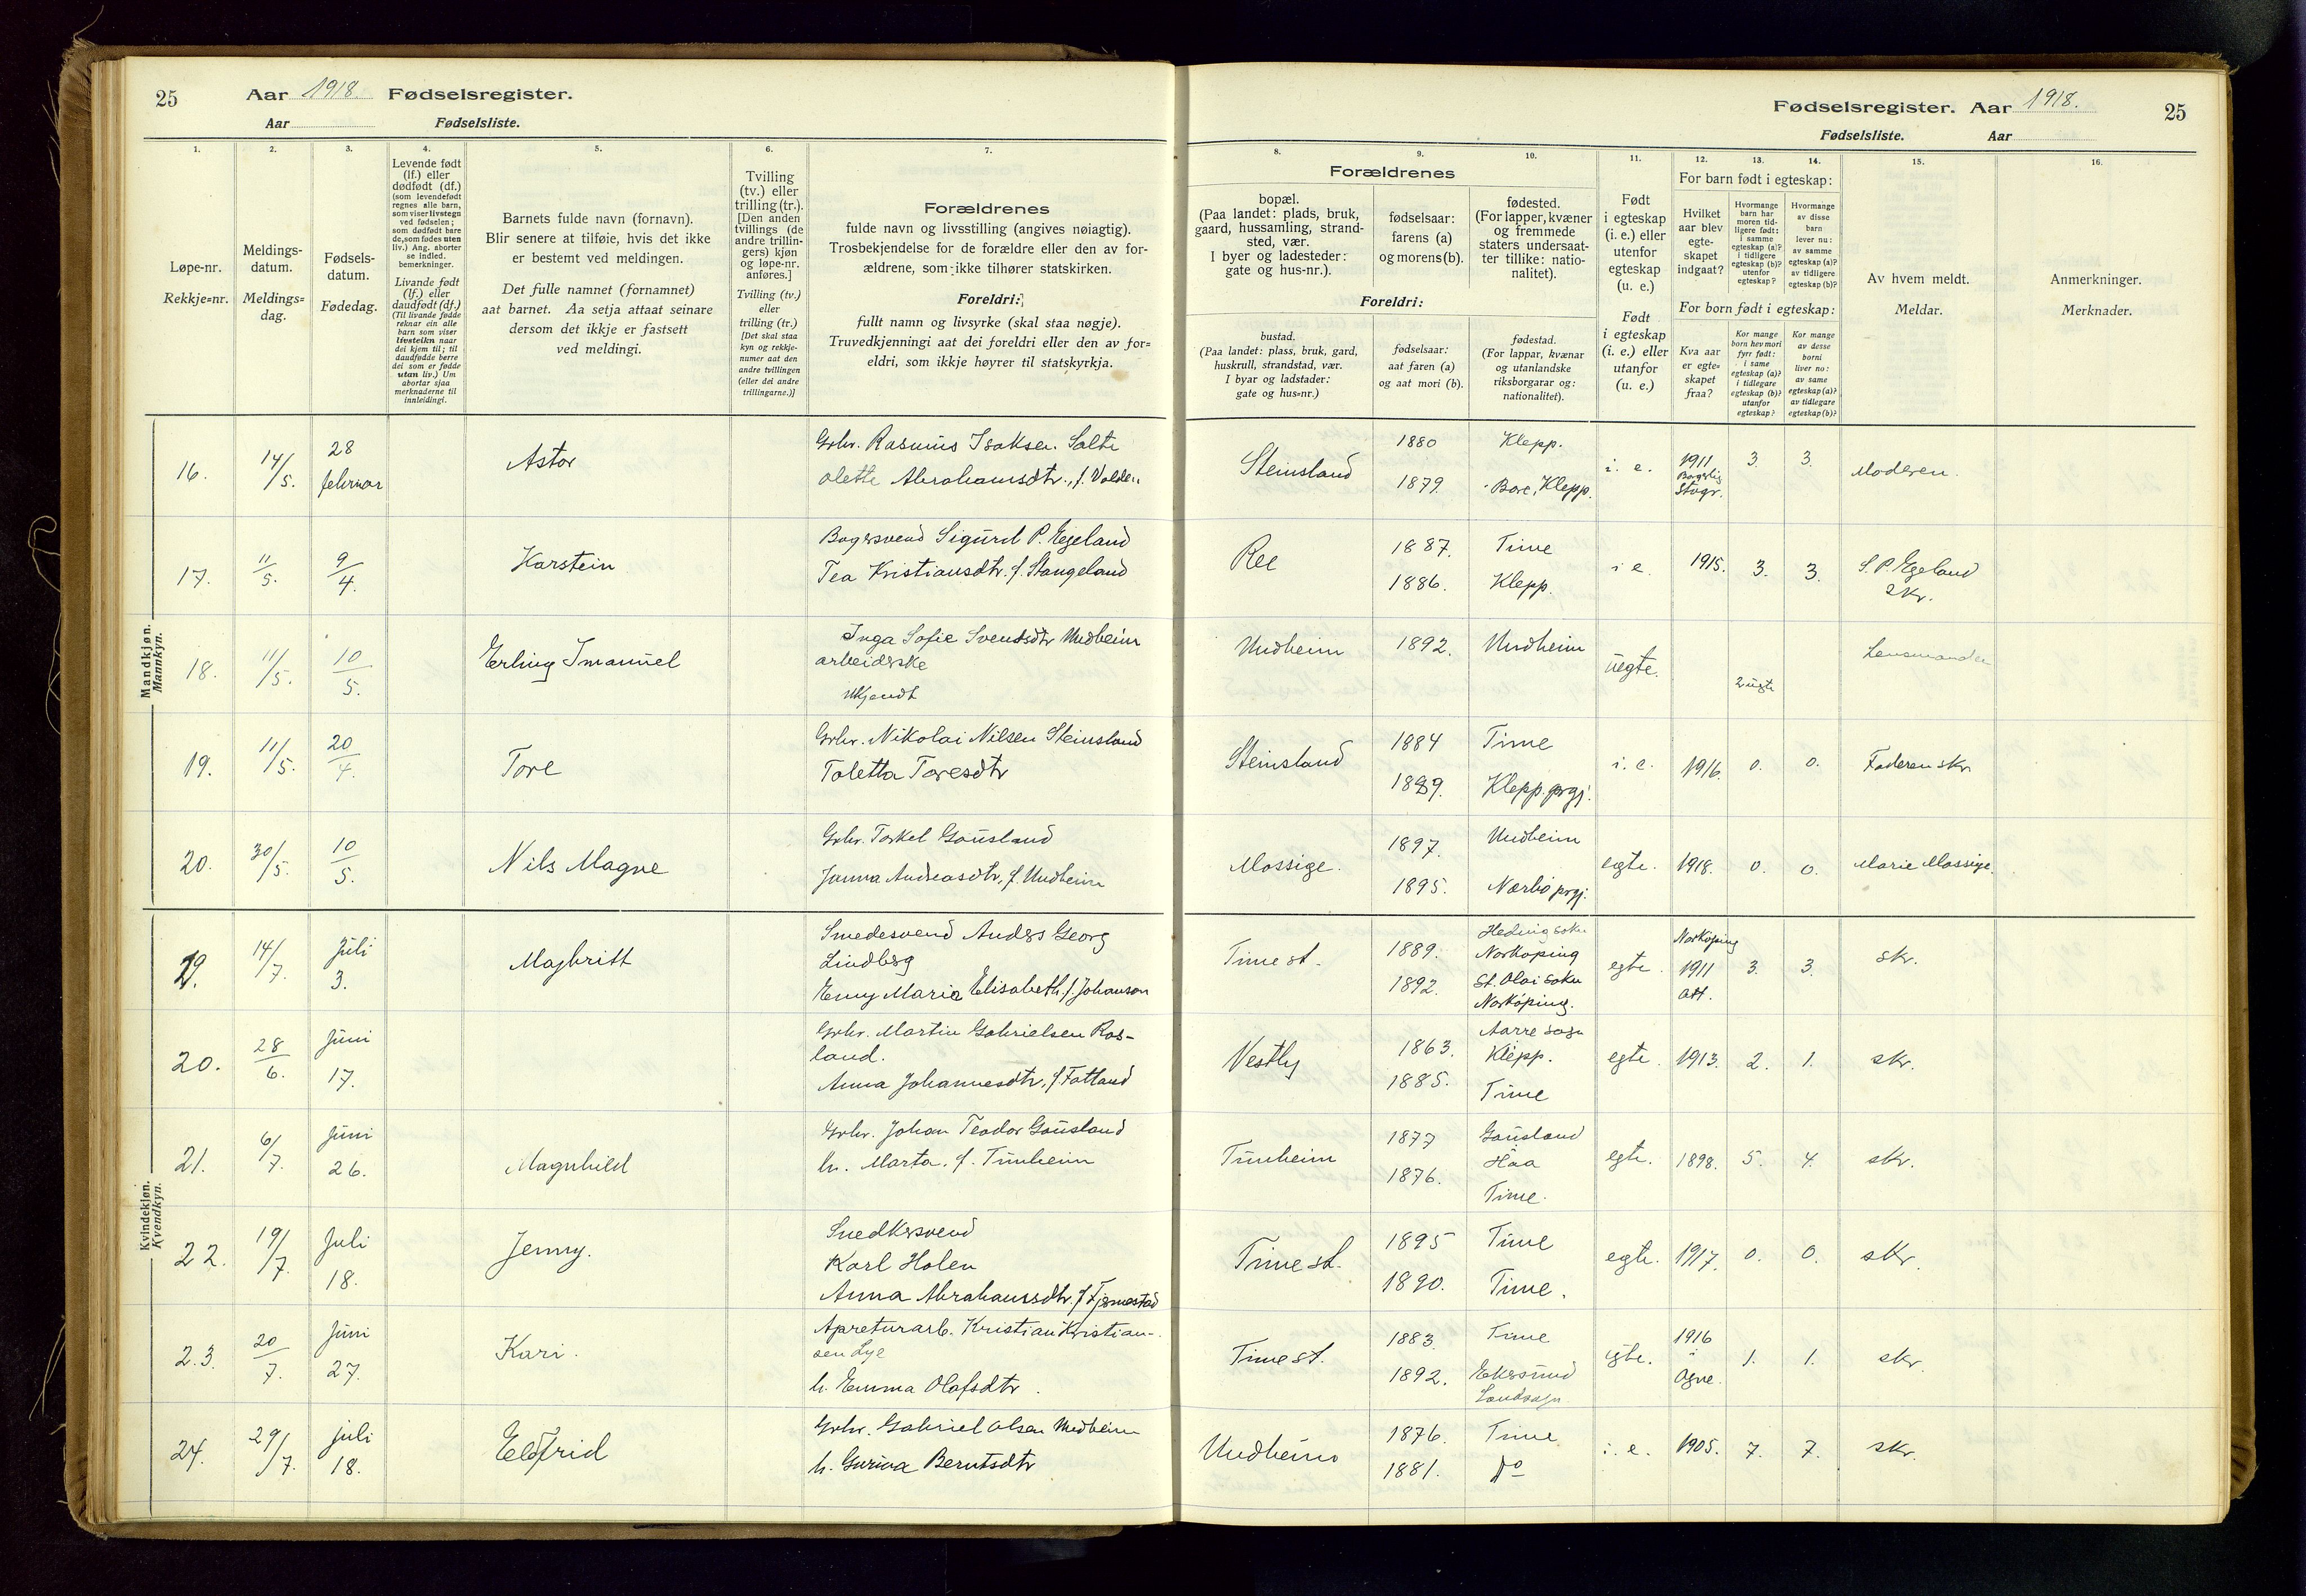 25
Aar 1918. Fødselsregister.
Aar
Fødselsliste.
1.
2.
3.
4.
5.
6.
7.
Løpe-nr.
Rekkje=nr.
Meldings-
datum.
Meldings=
dag.
Fødsels-
datum.
Fødedag.
Levende født
(lf.) eller
dødfødt (df.)
(som levendefødt
regnes alle barn,
som viser livstegn
ved fødselen;
som dødfødt bare
de, som fødes uten
liv.) Ang. aborter
se indled.
bemerkninger.
Livande født
(lf.) eller
daudfødt (df.)
(Til livande fødde
reknar ein alle
barn som viser
livsteikn naar
dei kjem til; til
daudfødde berre
dei som er fødde
utan liv.) Um
abortar sjaa
merknaderne til
innleidingi.
Barnets fulde navn (fornavn).
Blir senere at tilføie, hvis det ikke
er bestemt ved meldingen.
Det fulle namnet (fornamnet)
aat barnet. Aa setja attaat seinare
dersom det ikkje er fastsett
ved meldingi.
Tvilling
(tv.) eller
trilling (tr.).
[Den anden
tvillings (de
andre trillin-
gers) kjøn
og løpe-nr.
anføres.]
Tvilling (tv.)
eller
trilling (tr.)
[Det skal staa
kyn og rekkje-
numer aat den
andre tvillingen
(eller dei andre
trillingarne.)]
Forældrenes
fulde navn og livsstilling (angives nøiagtig).
Trosbekjendelse for de forældre eller den av for-
ældrene, som ikke tilhører statskirken.
Foreldri:
fullt namn og livsyrke (skal staa nøgje).
Truvedkjenningi aat dei foreldri eller den av for=
eldri, som ikkje høyrer til statskyrkja.
Mandkjøn.
Mannkyn.
16. 14/5. 28 februar Astor
Grbr. Rasmus Isaksen Salte
Olette Abrahamsdtr., f. Volden
17. 11/5. 9/4. Karstein
Bagersvend Sigurd P. Egeland
Tea Kristiansdtr. f. Stangeland
18. 11/5. 10/5. Erling Imanuel
Inga Sofie Svendsdtr Undheim
arbeiderske
Ukjendt
19. 11/5. 20/4. Tore
Grbr. Nikolai Nilsen Steinsland
Toletta Toresdtr
20. 30/5. 10/5. Nils Magne
Grbr. Torkel Gausland
Janna Andreasdtr, f. Undheim
Kvindekjøn.
Kvendkyn.
19. 14/7. Juli 3. Majbritt
Smedesvend Anders Georg
Lindberg
Emy Maria Elisabeth, f. Johanson
20. 28/6. Juni 17.
Grbr. Martin Gabrielsen Ros-
land.
Anna Johannesdtr, f Fotland
21. 6/7. Juni 26. Magnhild
Grbr. Johan Teodor Gausland
h. Marta, f. Tunheim
22. 19/7. Juli 18. Jenny.
Snedkersvend
Karl Holen
Anna Abrahamsdtr. f Fjermestad
23. 20/7. Juni 27. Kari.
Apreturarb. Kristian Kristian-
sen Lye
h. Emma Olafsdtr.
24. 29/7. juli 18. Eldfrid
Grbr. Gabriel Olsen Undheim
h. Gurina Berntsdtr
Fødselsregister. Aar 1918.
25
Fødselsliste.
Aar
8.
9.
10.
11.
12.
13.
14.
15.
16.
Forældrenes
bopæl.
(Paa landet: plads, bruk,
gaard, hussamling, strand-
sted, vær.
I byer og ladesteder:
gate og hus-nr.).
fødselsaar:
farens (a)
og morens (b).
fødested.
(For lapper, kvæner
og fremmede
staters undersaat-
ter tillike: natio-
nalitet).
Foreldri:
bustad.
(Paa landet: plass, bruk, gard,
huskrull, strandstad, vær.
I byar og ladstader:
gate og hus=nr.)
fødselsaar:
aat faren (a)
og aat mori (b).
fødestad.
(For lappar, kvænar
og utanlandske
riksborgarar og:
nationalitet).
Født
i egteskap
(i. e.) eller
utenfor
egteskap
(u. e.)
Født
i egteskap
(i. e.) eller
utanfor
(u. e.)
For barn født i egteskap:
Hvilket
aar blev
egte-
skapet
indgaat?
Hvormange
barn har
moren tid-
ligere født:
i samme
egteskap (a)?
i tidligere
egteskap (b)?
utenfor
egteskap?
Hvormange
av disse
barn
lever nu:
av samme
egteskap (a)?
av tidligere
egteskap (b)?
For born født i egteskap:
Kva aar
er egte=
skapet
fraa?
Kor mange
born hev mori
fyrr født:
i same
egteskap (a)?
i tidlegare
egteskap (b)?
utanfor
egteskap?
Kor mange
av desse
borni
liver no:
av same
egteskap (a)?
av tidlegare
egteskap (b)?
Av hvem meldt.
Meldar.
Anmerkninger.
Merknader.
Steinsland 1880 Klepp.
1879. Bore, Klepp.
i. e. 1911 Borgerlig Stvgr. 3. 3. Moderen.
Ree 1887. Time
1886. Klepp.
i e. 1915. 3. 3. S. P. Egeland
skr.
Undheim 1892. Undheim
uegte. 2 uegte Lensmanden
Steinsland 1884 Time
1889. Klepp. prgj.
i. e. 1916. 0. 0. Faderen skr
Mossige. 1897. Undheim
1895. Nærbø prgj.
egte. 1918. 0. 0. Marie Mossige.
Time st. 1889. Hedvig sokn
Norköping
1892. St. Olai sokn
Norköping.
egte. Norköping
1911 3. 3. skr.
Vestly 1863. Aarre sogn
Klepp.
1885. Time
egte. 1913. 2. 1. skr.
Tunheim 1877 Gausland
Haa
1876. Time.
egte. 1898. 5. 4. skr.
Time st. 1895 Time
1890. Time.
egte. 1917. 0. 0. skr.
Time st. 1883. Time
1892. Ekersund
Landsogn
egte. 1916
Ogne. 1. 1. skr.
Undheim 1876. Time
1881. do
i. e. 1905. 7. 7. skr.